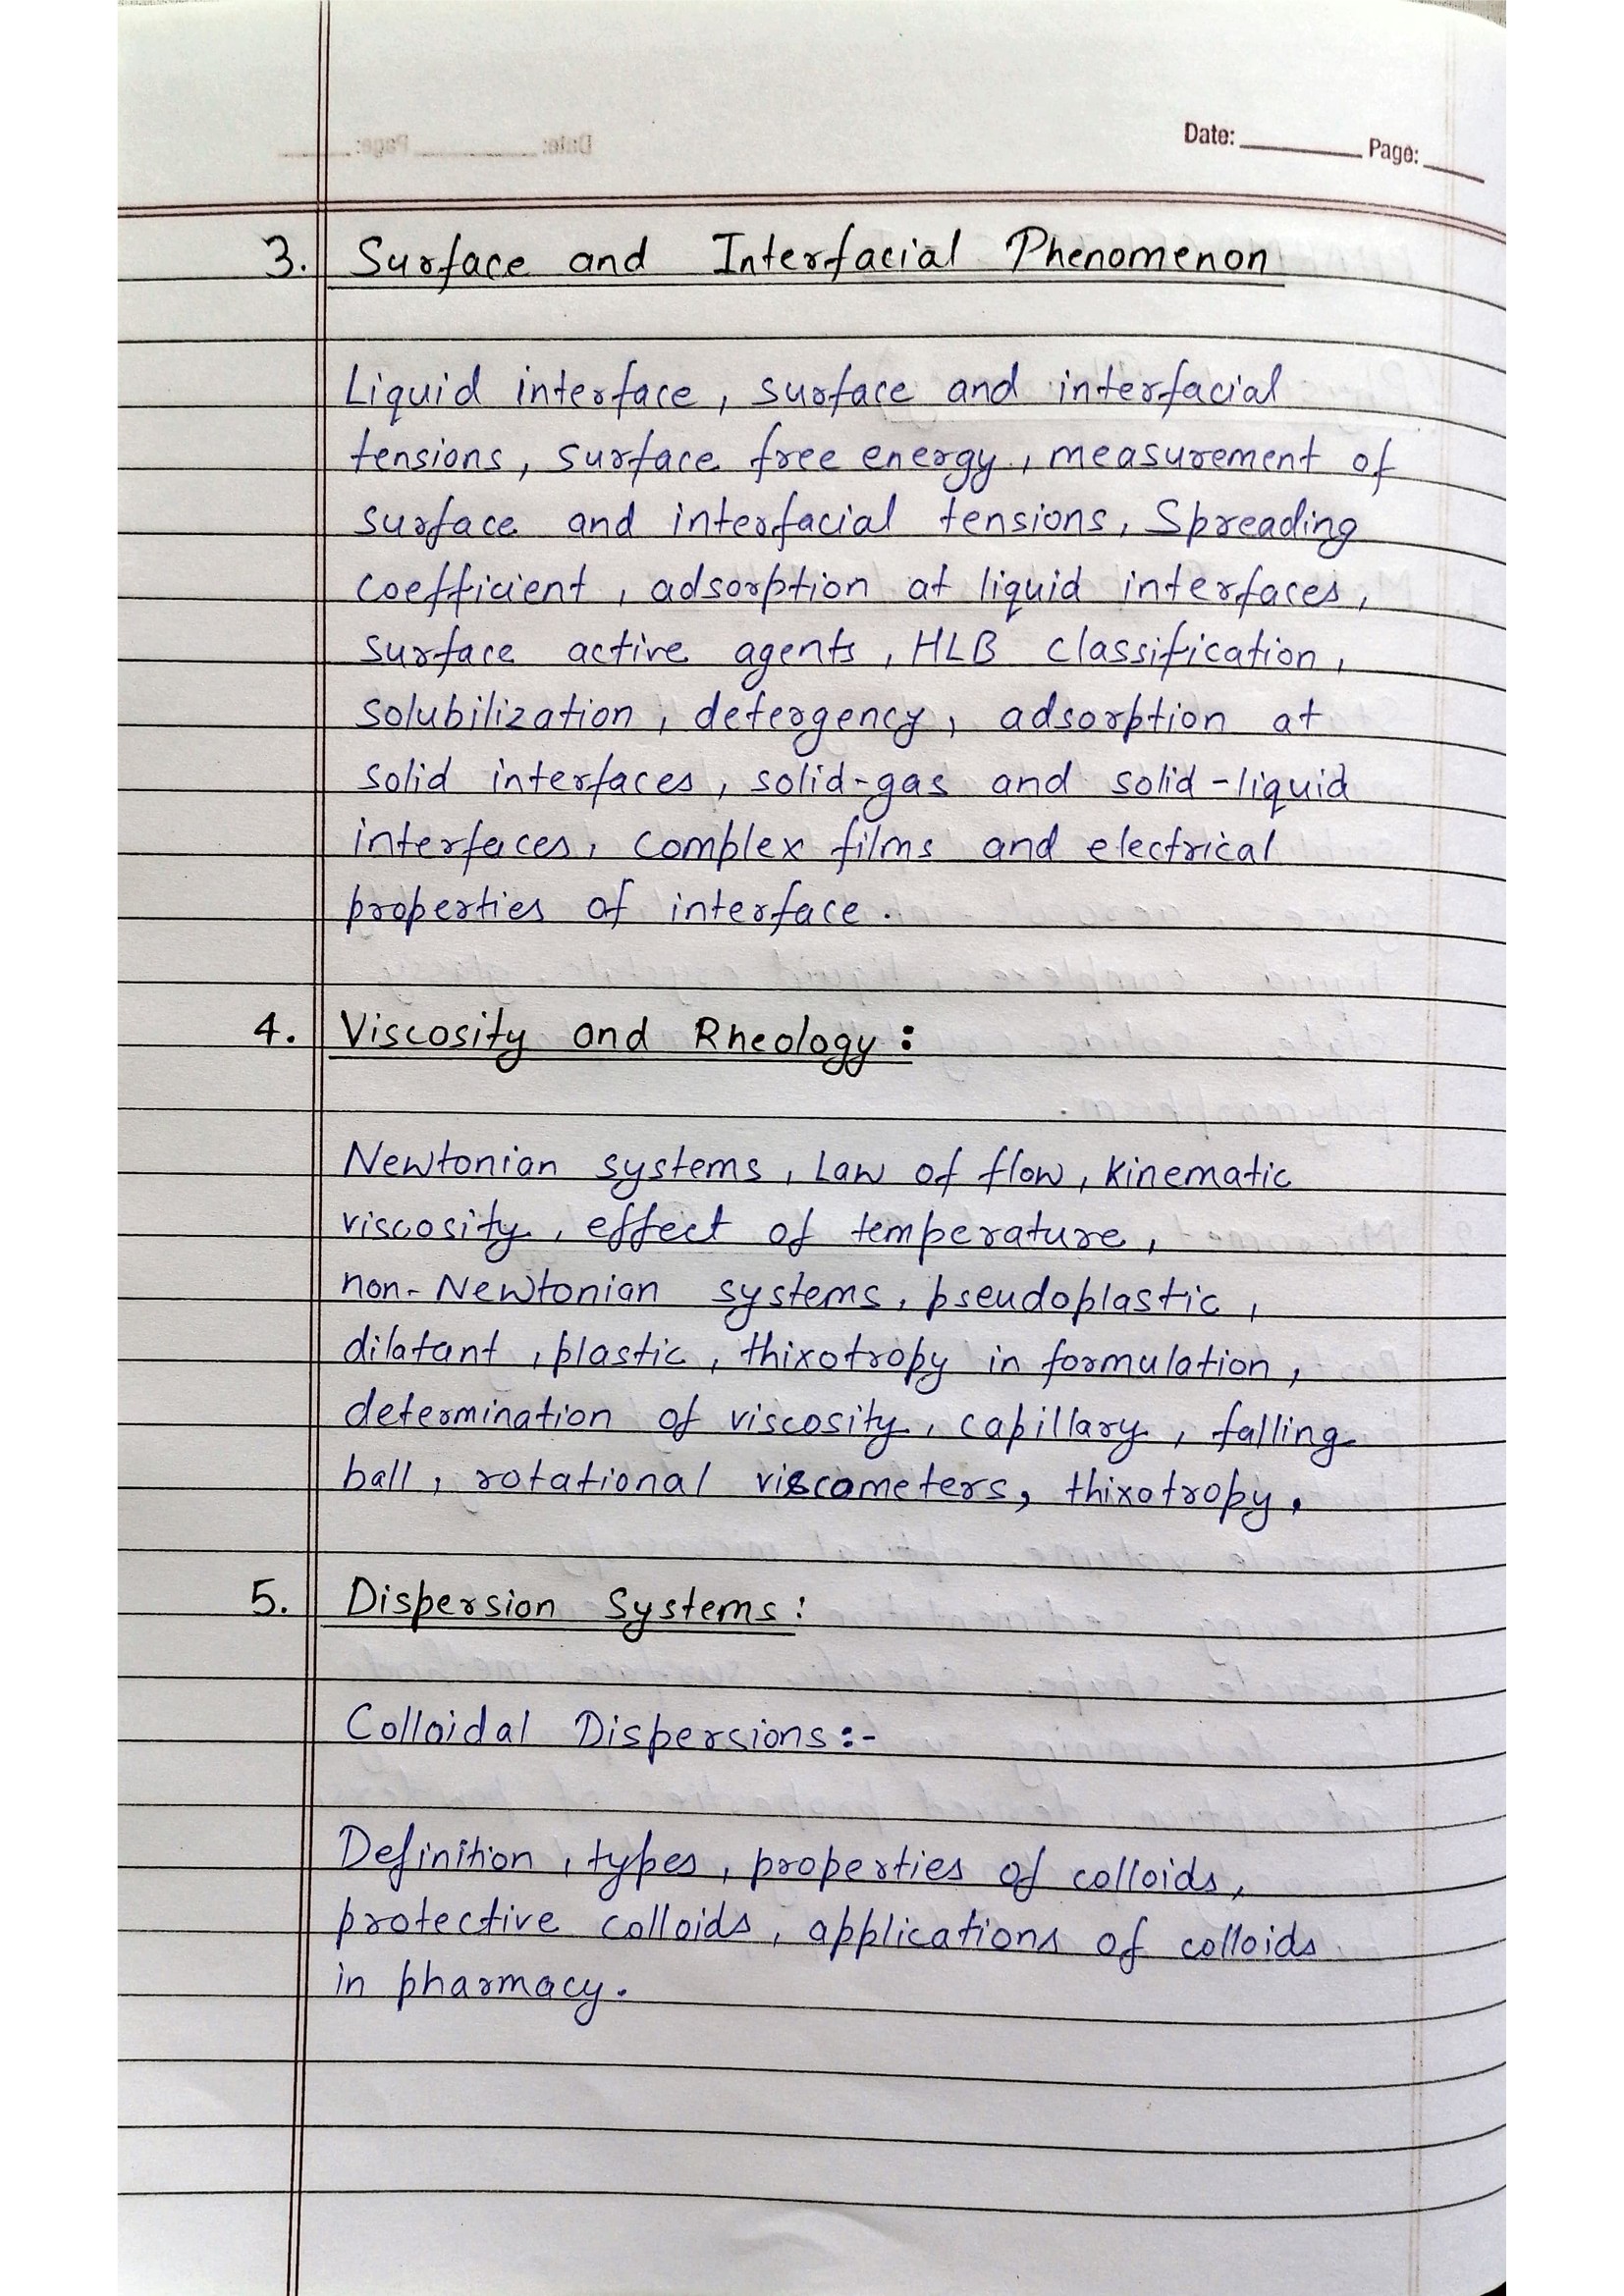 Date: ________ Page: ____
3. Surface and Interfacial Phenomenon
Liquid interface, surface and interfacial
tensions, surface free energy, measurement of
surface and interfacial tensions, Spreading
coefficient, adsorption at liquid interfaces,
surface active agents, HLB classification,
solubilization, detergency, adsorption at
solid interfaces, solid-gas and solid-liquid
interfaces, complex films and electrical
properties of interface.
4. Viscosity and Rheology:
Newtonian systems, Law of flow, kinematic
viscosity, effect of temperature,
non-Newtonian systems, pseudoplastic,
dilatant, plastic, thixotropy in formulation,
determination of viscosity, capillary, falling
ball, rotational viscometers, thixotropy.
5. Dispersion Systems:
Colloidal Dispersions:-
Definition, types, properties of colloids,
protective colloids, applications of colloids
in pharmacy.